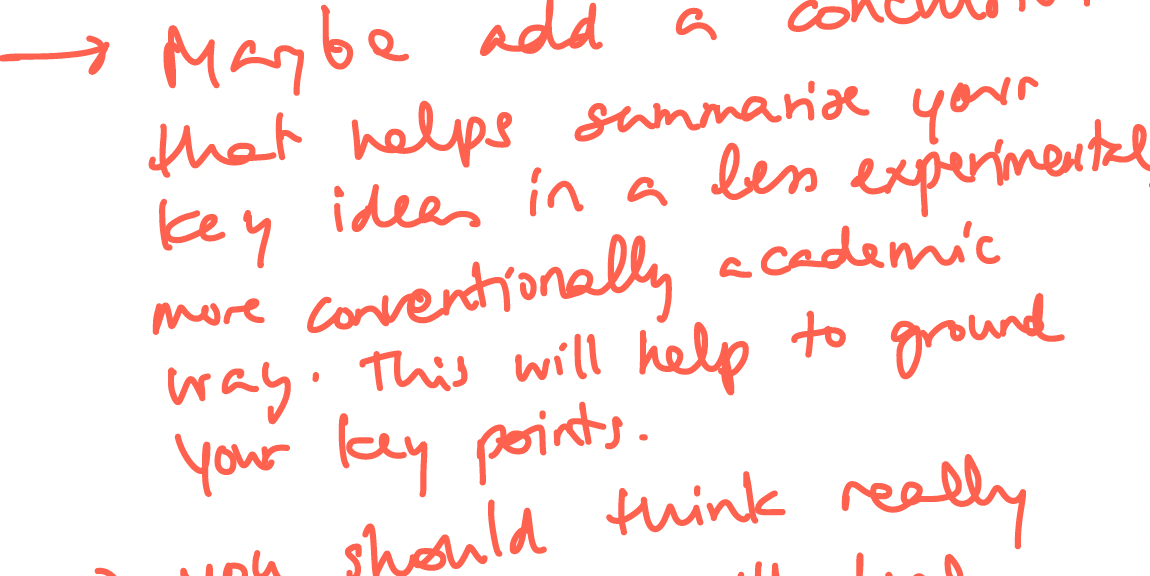 → Maybe add a conclusion
that helps summarise your
key ideas in a less experimental,
more conventionally academic
way. This will help to ground
your key points.
→ you should think really